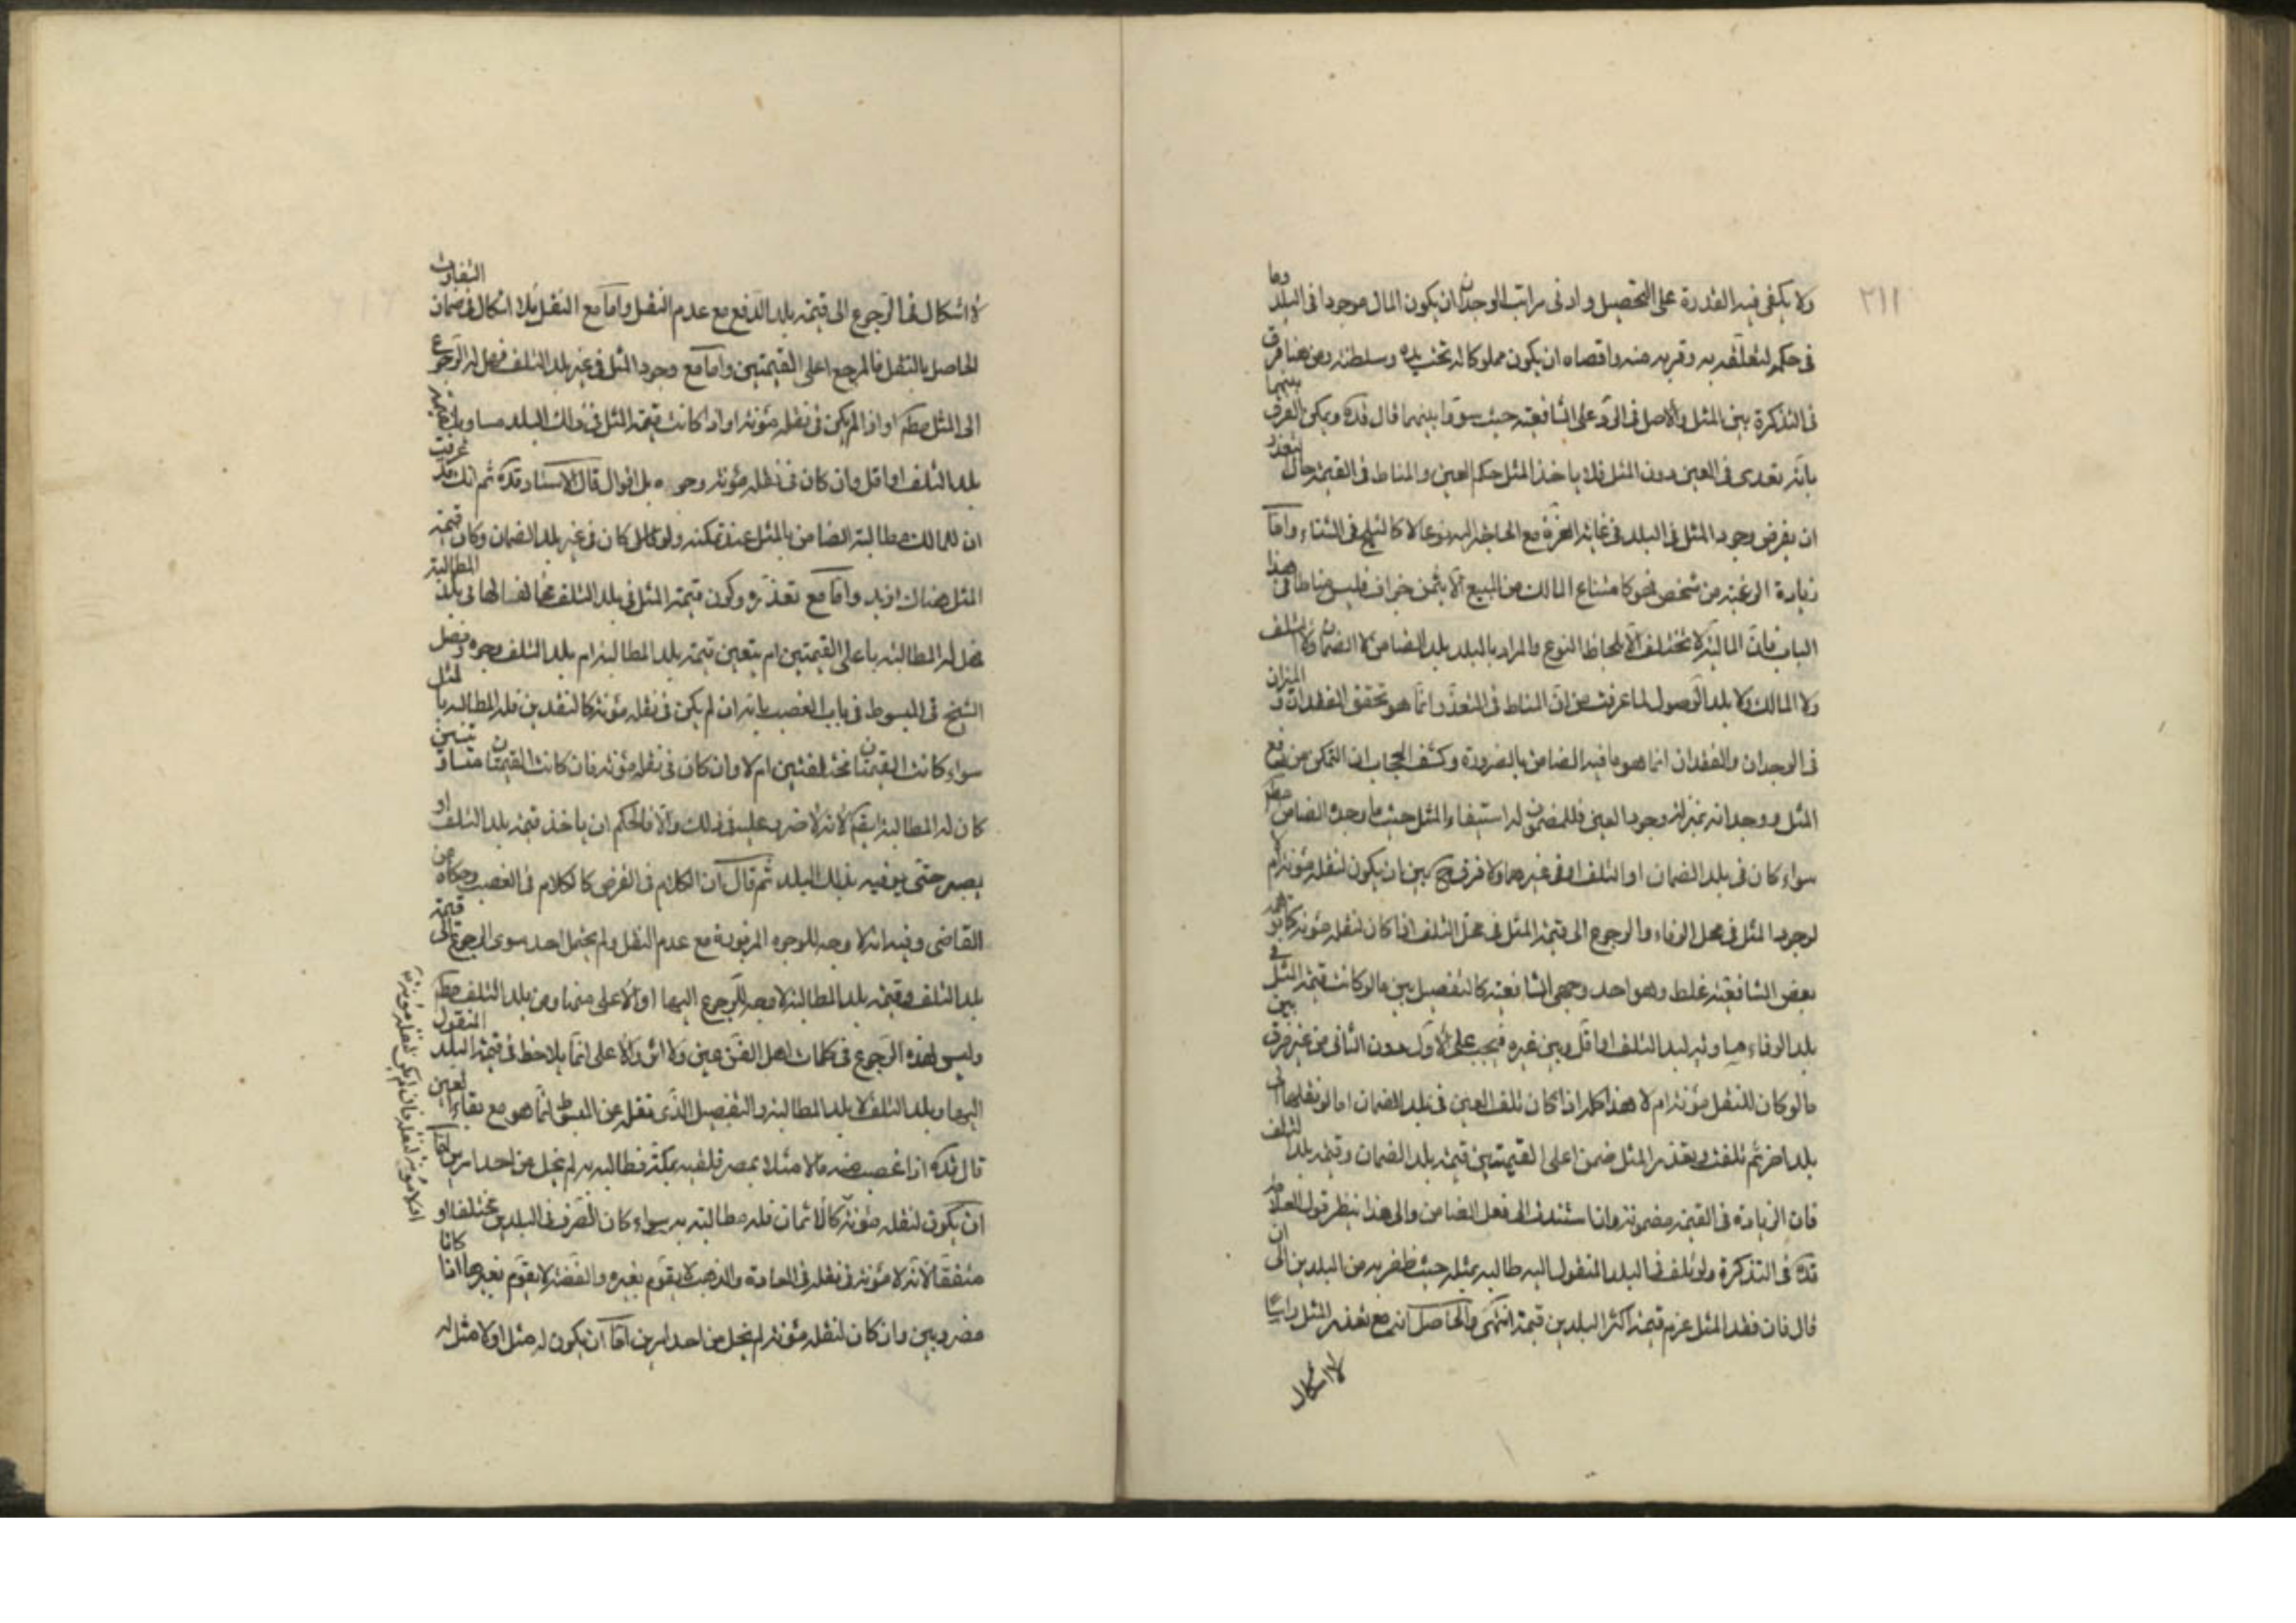 ٢١١
ولا يكفى فيه القدرة على التحصيل وادنى مراتب الوجدان ان يكون المال موجودا فى البلد وما
فى حكمه لتعلقه به وقربه منه واقصاه ان يكون مملوكا له تحت يده وسلطنته ومن هنا فرق
فى التذكرة بين المثل والاصل فى الرد على الشافعية حيث سووا بينهما قال قده ويمكن الفرق بينهما
بانه تعدى فى العين دون المثل فلا ياخذ المثل حكم العين والمناط فى القيمة حال التعذر
ان يفرض وجود المثل فى البلد فى غاية العزة مع الحاجة اليه نوعا لا كالثلج فى الشتاء واما
زيادة الرغبة من شخص نحو كامتناع المالك من البيع الا بثمن جزاف فليس مناطا فى هذا
الباب فان المالية لا تختلف الا بلحاظ النوع والمراد بالبلد بلد الضامن لا الضمان ولا التلف
ولا المالك ولا بلد الوصول لما عرفت من ان المناط فى التعذر انما هو تحقق الفقدان و الميزان
فى الوجدان والفقدان انما هو ما فيه الضامن بالضرورة وكشف الحجاب ان التمكن من دفع
المثل ووجدانه بمنزلة وجود العين فللمضمون له استيفاء المثل حيث ما وجد الضامن مطم
سواء كان فى بلد الضمان او التلف او فى غيرهما ولا فرق ح بين ان يكون لنقله مؤنة ام لا
لوجود المثل فى محل الوفاء والرجوع الى قيمة المثل فى محل التلف اذا كان لنقله مؤنة كما توهمه
بعض الشافعية غلط وهو احد وجهى الشافعية كالتفصيل بين ما لو كانت قيمة المثل فى
بلد الوفاء مساوية لبلد التلف او اقل وبين غيره فيجب على الاول دون الثانى من غير فرق بين
ما لو كان للنقل مؤنة ام لا هذا كله اذا كان تلف العين فى بلد الضمان اما لو نقلها الى
بلد اخر ثم تلفت وتعذر المثل ضمن اعلى القيمتين قيمة بلد الضمان وقيمة بلد التلف
فان الزيادة فى القيمة مضمونة وانها استندت الى فعل الضامن والى هذا ينظر قول العلامة
قده فى التذكرة ولو تلف فى البلد المنقول اليه طالبه بمثله حيث ظفر به من البلدين الى ان
قال فان فقد المثل غرم قيمة اكثر البلدين قيمة انتهى والحاصل انه مع تعذر المثل راسا
لا اشكال
لا اشكال فى الرجوع الى قيمة بلد الدفع مع عدم النقل واما مع النقل فلا اشكال فى ضمان التفاوت
الحاصل بالنقل فالمرجع اعلى القيمتين واما مع وجود المثل فى غير بلد التلف فهل له الرجوع
الى المثل مطم او اذا لم يكن فى نقله مؤنة او اذا كانت قيمة المثل فى ذلك البلد مساوية لقيمة
بلد التلف او اقل وان كان فى نقله مؤنة وجوه بل اقوال قال الاستاد قده ثم انك قد عرفت
ان للمالك مطالبة الضامن بالمثل عند تمكنه ولو كان فى غير بلد الضمان وكان قيمة
المثل هناك ازيد واما مع تعذره وكون قيمة المثل فى بلد التلف مخالفا لها فى بلد المطالبة
فهل له المطالبة باعلى القيمتين ام يتعين قيمة بلد المطالبة ام بلد التلف وجوه وفصل
الشيخ فى المبسوط فى باب الغصب بانه ان لم يكن فى نقله مؤنة كالنقدين فله المطالبة بالمثل
سواء كانت القيمتان مختلفتين ام لا وان كان فى نقله مؤنة فان كانت القيمتان متساويتين
كان له المطالبة ايضم لانه لا ضرر عليه فى ذلك والا فالحكم ان ياخذ قيمة بلد التلف او
يصبر حتى يوفيه بذلك البلد ثم قال ان الكلام فى القرض كالكلام فى الغصب وحكاه عن
القاضى وفيه انه لا وجه للوجوه المزبورة مع عدم النقل ولم يحتمل احد سوى الرجوع الى قيمة
بلد التلف وقيمة بلد المطالبة لا وجه للرجوع اليها او الاعلى منها ومن بلد التلف مطم
وليس لهذه الرجوع فى كلمات اهل الفن عين ولا اثر والاعلى انما يلاحظ فى قيمة البلد المنقول
اليها وبلد التلف لا بلد المطالبة والتفصيل الذى نقل عن المبسوط انما هو مع بقاء العين
قال قده اذا غصب منه مالا مثلا بمصر فلقيه بمكة فطالبه به لم يخل من احد امرين اما
ان يكون لنقله مؤنة كالاثمان فله مطالبته به سواء كان الصرف فى البلدين مختلفا او
متفقا لانه لا مؤنة فى نقله فى العادة والذهب لا يقوم بغيره والفضة لا يقوم بغيرها اذا كانا
مضروبين وان كان لنقله مؤنة لم يخل من احد امرين اما ان يكون له مثل او لا مثل له